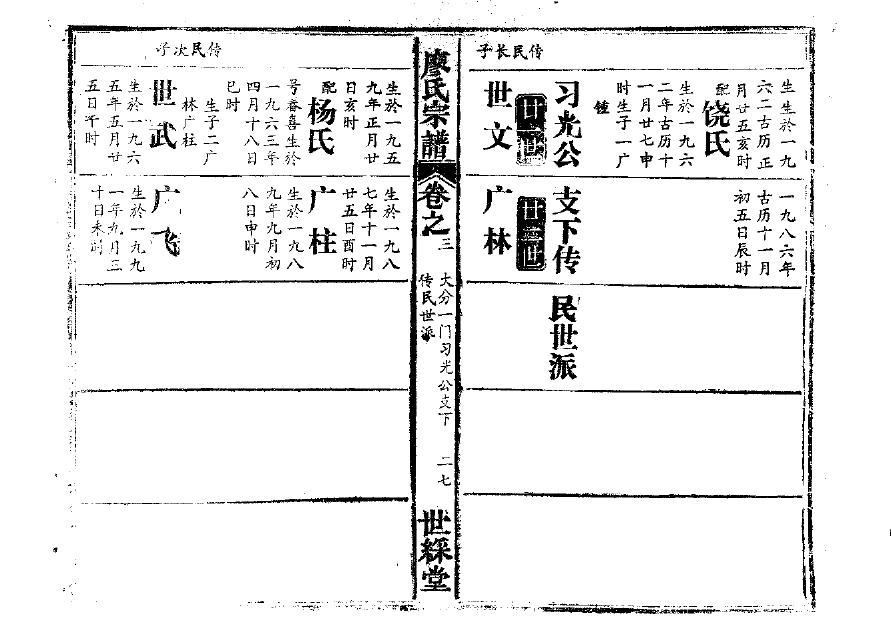 传民长子
生生於一九
六二古历正
月廿五亥时
配饶氏
生於一九六
二年古历十
一月廿七申
时生子一广
锺
习光公支下传民世派
世文
一九八六年
古历十一月
初五日辰时
广林
廖氏宗譜
卷之三
大分一门习光公支下
传民世派
二七
世綵堂
传民次子
生於一九五
九年正月廿
日亥时
配杨氏
号春喜生於
一九六三年
四月十八日
巳时
生子二广
林广柱
世武
生於一九六
五年五月廿
五日午时
生於一九八
七年十一月
廿五日酉时
广柱
生於一九八
九年九月初
八日申时
广飞
生於一九九
一年九月三
十日未时